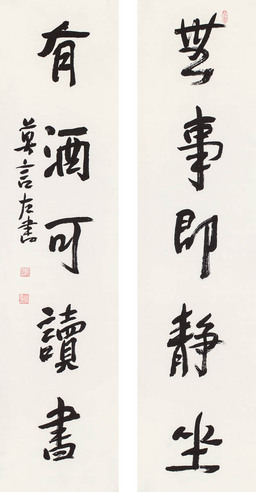 無事即静坐
有酒可讀書
莫言左書